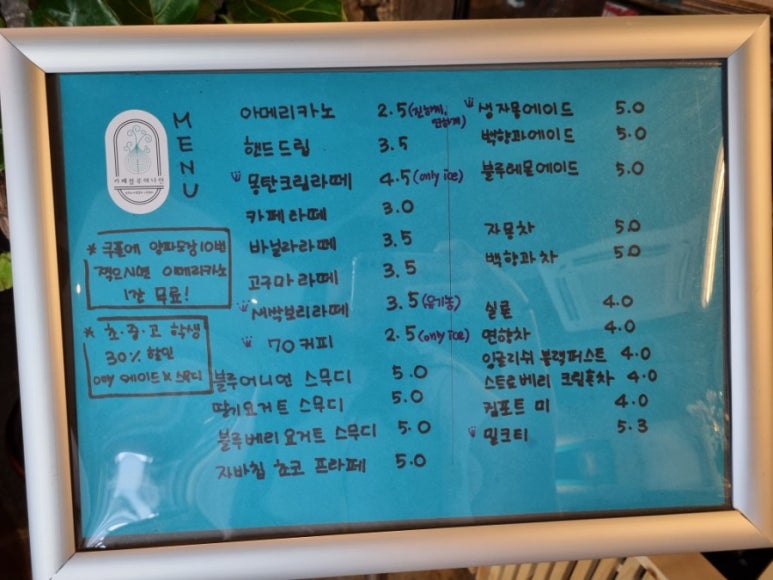 MENU
아메리카노 2.5 (진하게, 연하게)
핸드드립 3.5
몽탄크림라떼 4.5 (only ice)
카페라떼 3.0
바닐라라떼 3.5
고구마라떼 3.5
새싹보리라떼 3.5 (유기농)
70커피 2.5 (only ice)
블루어니언 스무디 5.0
딸기요거트 스무디 5.0
블루베리요거트 스무디 5.0
자바칩 초코 프라페 5.0
생자몽에이드 5.0
백향과에이드 5.0
블루레몬에이드 5.0
자몽차 5.0
백향과차 5.0
실론 4.0
연하차 4.0
잉글리쉬 블랙퍼스트 4.0
스트로베리 크림홍차 4.0
컴포트 미 4.0
밀크티 5.3
* 쿠폰에 양파도장 10번
찍으시면 아메리카노
1잔 무료!
* 초.중.고 학생
30% 할인
only 에이드 X 스무디